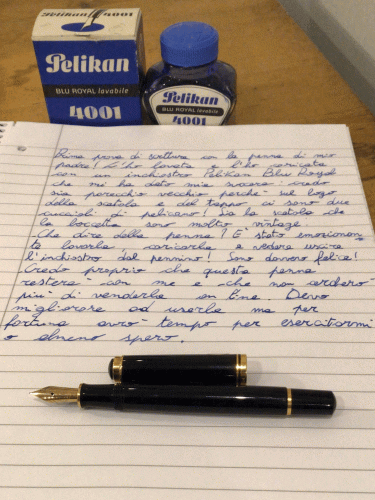 Pelikan 4001
Pelikan
BLU ROYAL lavabile
4001
Pelikan
BLU ROYAL lavabile
4001
Prima prova di scrittura con la penna di mio
padre! L'ho lavata e l'ho caricata
con un inchiostro Pelikan Blu Royal
che mi ha dato mia suocera: credo
sia parecchio vecchio perché sul logo
della scatola e del tappo ci sono due
cuccioli di pellicano! Sia la scatola che
la boccetta sono molto vintage.
Che dire della penna? E' stato emozionan
te lavarla, caricarla e vedere uscire
l'inchiostro dal pennino! Sono davvero felice!
Credo proprio che questa penna
resterà con me e che non andrò
più di venderla Devo
migliorare ad usarla ma per
fortuna avrò tempo per esercitarmi
o almeno spero.